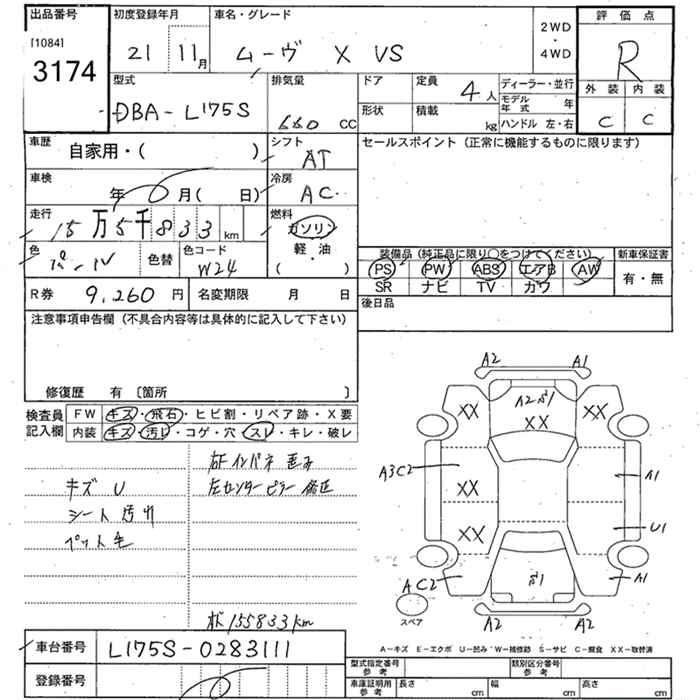 出品番号
[1084]
3174
初度登録年月
21 11月
車名・グレード
ムーヴ X VS
2WD
・
4WD
評価点
R
外装 内装
C C
型式
DBA-L175S
排気量
660 CC
ドア
定員
4人
形状
積載
kg
ディーラー・並行
モデル年式 年
ハンドル 左・右
車歴
自家用・( )
シフト
AT
セールスポイント (正常に機能するものに限ります)
車検
年 0月( 日)
冷房
AC
走行
15万5千833km
燃料
ガソリン
軽・油
( )
色
パール
色替
色コード
W24
装備品(純正品に限り○をつけてください)
新車保証書
PS PW ABS エアB AW
SR ナビ TV カワ
有・無
R券 9,260円
名変期限 月 日
後日品
注意事項申告欄 (不具合内容等は具体的に記入して下さい)
修復歴 有〔箇所 〕
検査員記入欄
FW キズ・飛石・ヒビ割・リペア跡・X要
内装 キズ・汚レ・コゲ・穴・スレ・キレ・破レ
右Fインパネ 歪み
キズ U
左センターピラー 修正
シート汚れ
ペット毛
155833km
A2 A1
A2 XX
XX XX
A3C2 XX A1
XX U1
AC2 A1
スペア
A2 A2
A-キズ E-エクボ U-凹み W-補修跡 S-サビ C-腐食 XX-取替済
車台番号
L175S-0283111
登録番号
型式指定番号 参考
類別区分番号 参考
車庫証明用 参考
長さ cm 幅 cm 高さ cm